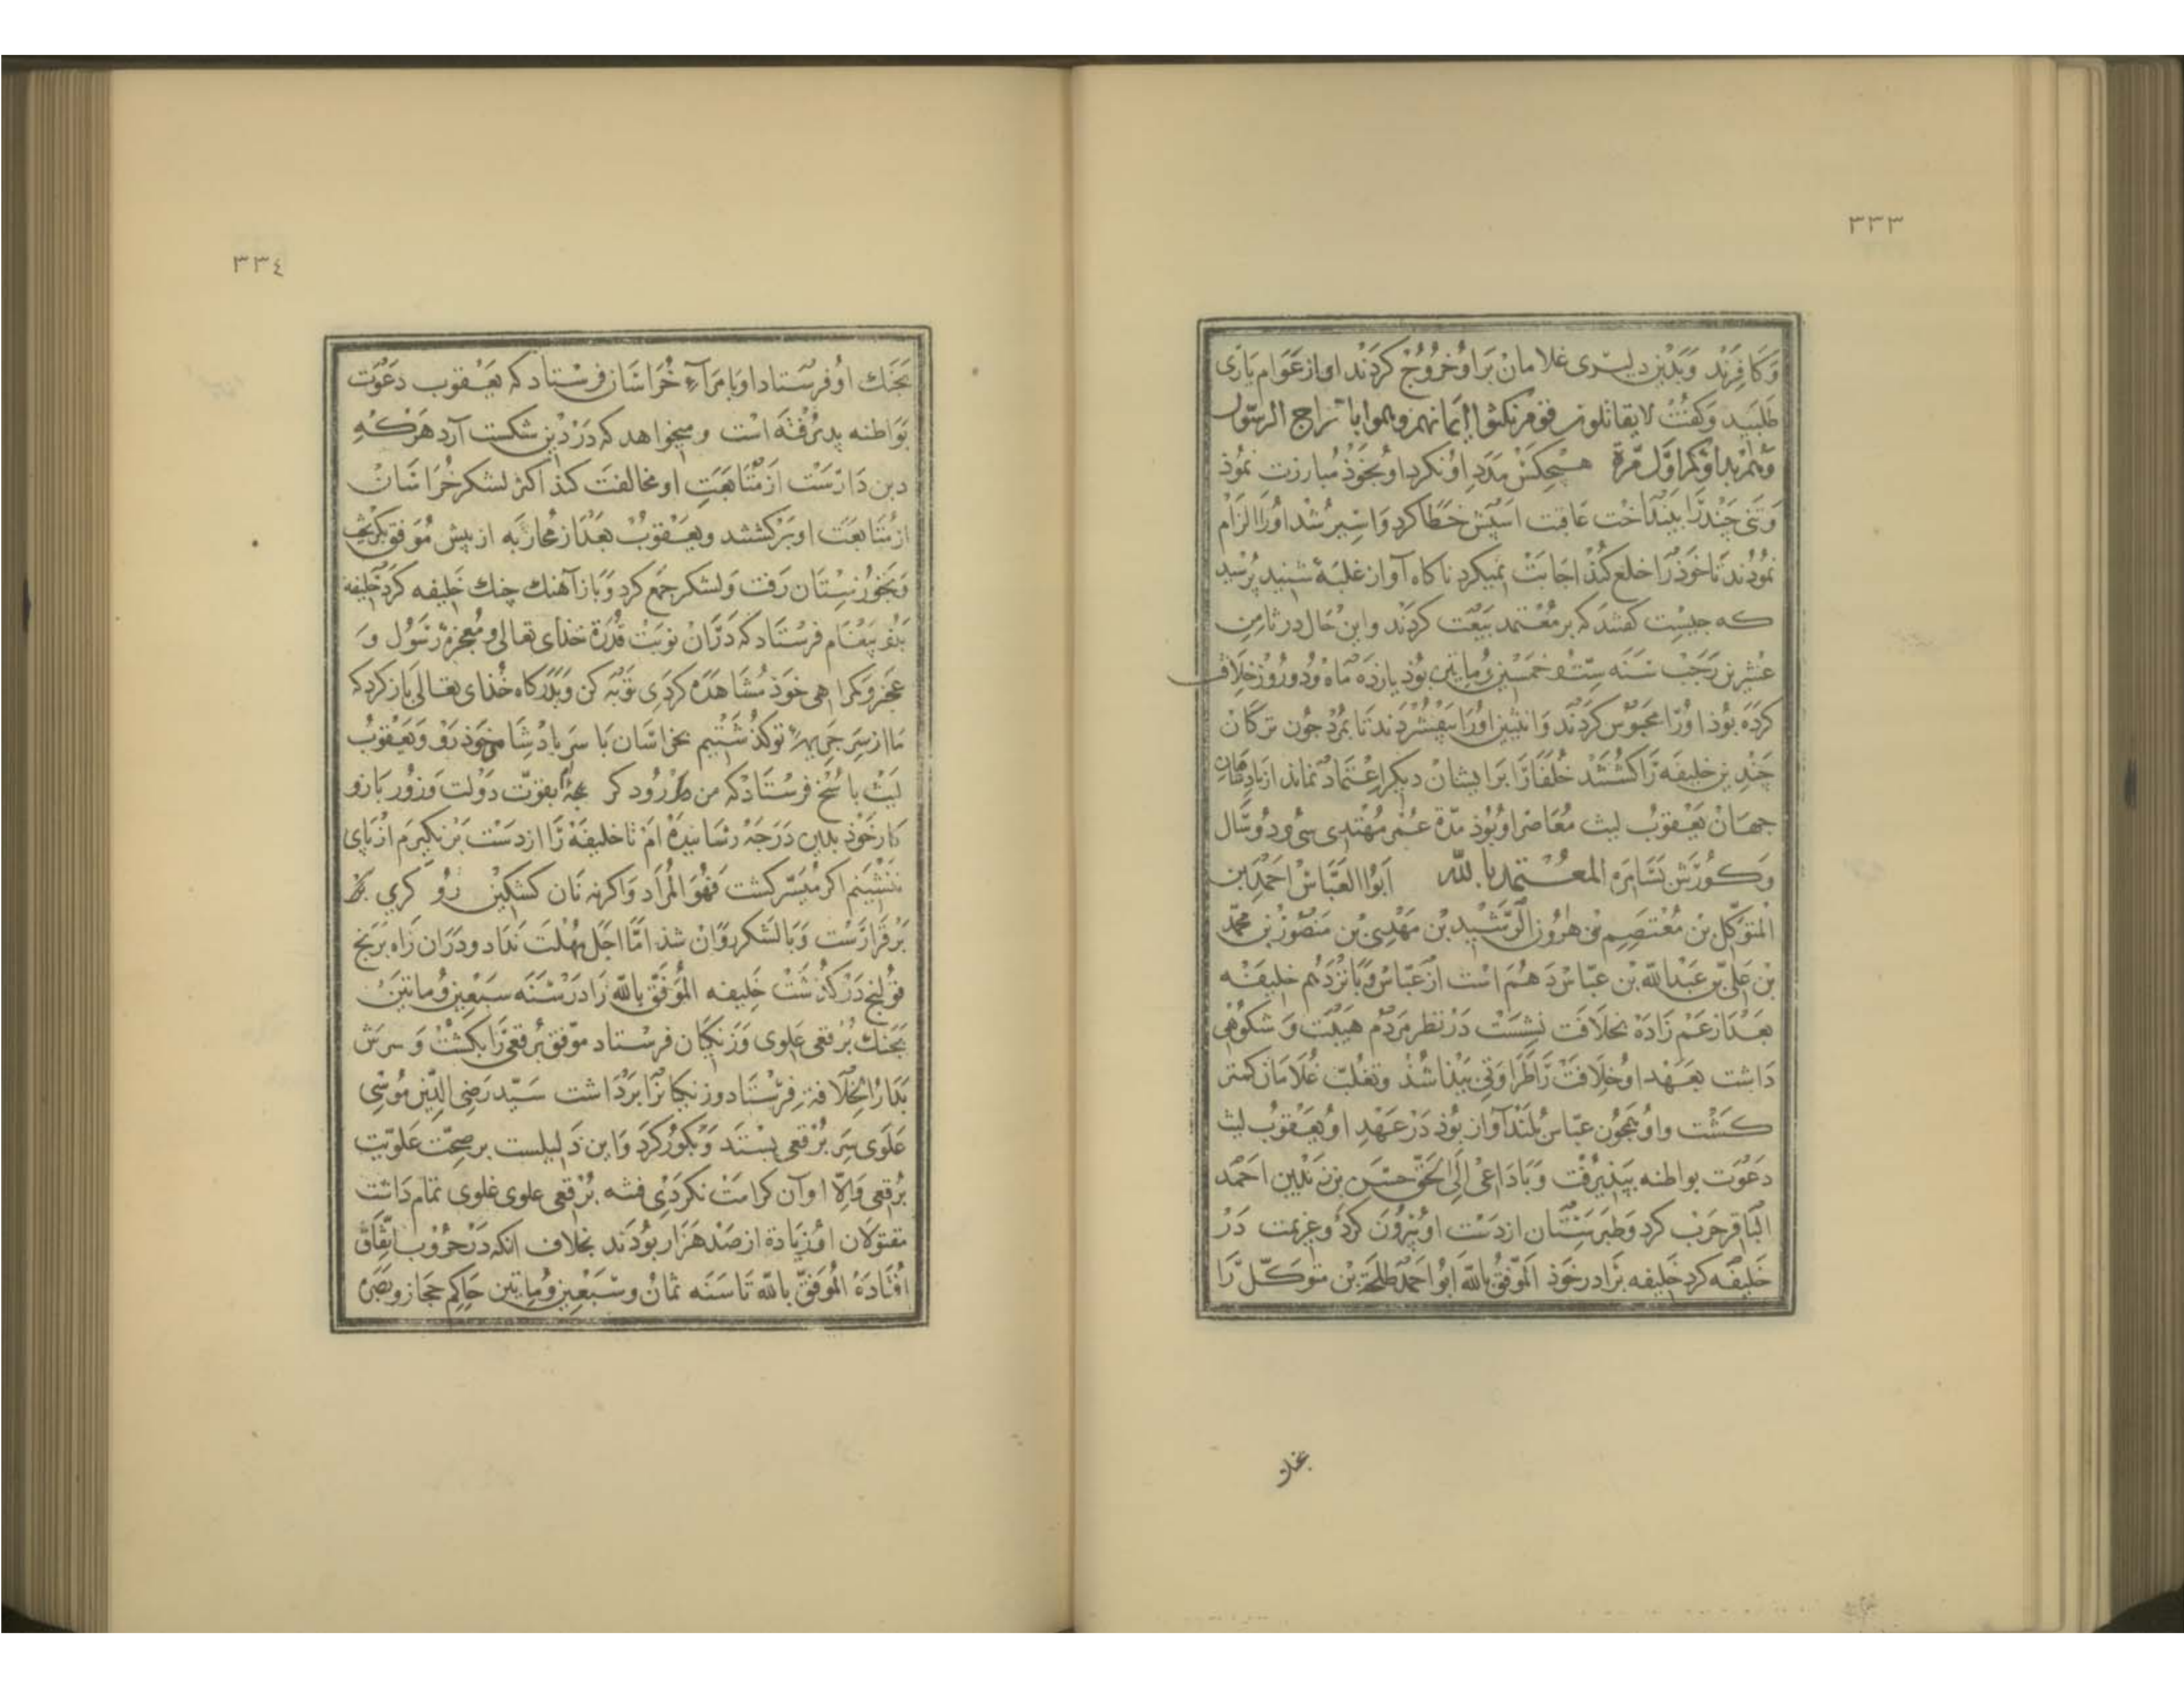 ٣٣٣
وَكافِرَند وَبَدين دلیری غلامان بَراو خُروُج كردَند او از عَوام یارَى
طَلبید وَكفت لا یقاتلون قوم نكثوا ایمانهم وهموا باخراج الرسّول
وَهُم بداؤكم اوّل مَرّة هیچكسَ مدَد او نكرد او بخوذ مُبارزت نمُوذ
وَتنى چَند را بینداخت عَاقبت اسپش خطا كرد وَاسیر شد اورا الزام
نموُدند تا خوذ را خلع كنذ اجابت نمیكرد ناكاه آواز غلبَۀ شنید پُرسید
كه جیست كفتند كه بر مُعْتمد بَیعَت كردَند واین حَال در ثامِن
عشرین رَجَب سَنَه سِتّ وخمسین ومایتین بُوذ یازده مَاه ودو روُز خلافت
كرده بُوذ اورا محبوُس كردَند وَانثیین اورا بیَفشردَند تا بمُرد جون تركان
چَندین خلیفه را كشتند خُلفا را بَر ایشان دیكر اعتماد نماند از پادشاهان
جهَان یَعقوب لیث مُعَاصر او بُوذ مدّة عُمر مُهتدى سی ودو سَال
وَكورَش بسَامره المعُتمد بالله ابوُ العَبّاس احمَد ابن
المتوَكّل بن مُعْتصِم بن هروُن الرّشید بن مَهْدی بن منصوُر بن محمّد
بن عَلىّ بن عَبْدالله بن عبّاس دَهُم است از عبّاس وَپانزدَهُم خلیفَه
بَعْد از عَم زادَه بخلافَت نشِسَت دَر نظر مردُم هیبَت وَشكوُهى
دَاشت بعَهد او خلافت را طَرَاوَتى بَیذا شذ وتغلب غلامَان كمتر
كَشت واو همجُون عبّاس بُلند آواز بُوذ دَر عَهْدِ او یَعقوُب لیث
دَعْوت بواطنه بپذیرفت وَبَا دَاعى الَى الحَقّ حسَن بن زید بن احمَد
البَاقر حَرب كرد وَطبرَستان از دَست او بیروُن كرد وعزیمت دَر
خلیفه كرد خَلیفه برَادر خوَذ الموَفّق بالله ابوُ احمَد طلحَة بن متوَكّل را
بجنك
٣٣٤
بَجنَك او فرستاد او بامَرآء خُرَاسَان فرستاد كه یَعقوب دَعْوَت
بَوَاطنه پذیرُفته است ومیخواهد كه دَر دین شكست آرد هَركه
دین دَار است از مُتابَعَتِ او مخالفت كند اكثر لشكر خُرَاسان
از مُتابعَت او بَركشتند ویَعقوُب بَعْد از محاربَه از پیش مُوَفق بكریخت
وَبخوُزستان رَفت وَلشكر جمع كرد وَبَاز آهنك جنك خَلیفه كرد خَلیفه
بَدو پیغام فرستاد كه دَرَان نوبت قدُرَة خذاى تعالى ومُعجزۀ رَسوُل وَ
عجز ومكر اهى خوذ مُشاهدَه كردى توَبَه كن وَبدَركاه خُذاى تعَالى باز كرد كه
مَا از سَر جریمۀ تو كذشتیم بخراسَان بَا سَر پادشاهى خوذ رَو ویَعقوُب
لیَث پاسُخ فرستاد كه من رود كر بچه‌ام بقوّت دَولت وَزوُر بَازو
كار خوَذ بدین دَرَجَه رسَانیده ام تا خلیفَه را از دَست بَرنكیرَم از پَاى
ننشینم اكر مُیَسّر كشت فَهُوَ المُرَاد وَاكر نه نان كشكین رُو كرى
بَر قرَار است وَبا لشكر روَان شذ امّا اجَل مهْلت نَداد ودَران راه برَنج
قوُلنج دَر كذشت خَلیفه المُوَفّق بالله را در سَنَه سَبعین ومایتین
بَجنك بُرقعى عَلوى وَزنكیَان فرستاد موَفق بُرقعى را بكشت وسَرش
بَدَارُ الخِلافَة فِرستاد وزنكیان را برَداشت سَیّد رَضى الدّین موُسى
عَلوَى سَر بُرْقعى بسِتَد وَبكوُر كرَد وَاین دَلیلست بر صِحّت عَلوِیّت
بُرقعى وَالّا اوآن كرامَت نكردَى فتنه بُرْقعى علوى غلوى تمام دَاشت
مقتوُلان او زیادة از صَد هَزار بوُدَند بخلاف انكه دَر حُروُب اتّفاق
افتادَه المُوَفّق بالله تا سَنَه ثمان وسَبعین ومایتین حَاكم حجاز وبصَره